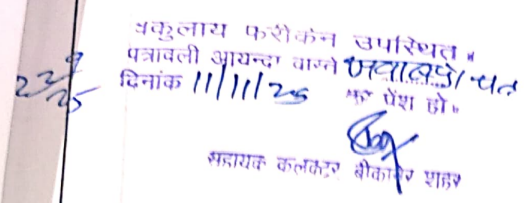 वकुलाय फरीकेन उपस्थित।
पत्रावली आयन्दा वास्ते
22/9/25
दिनांक 11/11/25 को पेश हो।
सहायक कलक्टर बीकानेर शहर